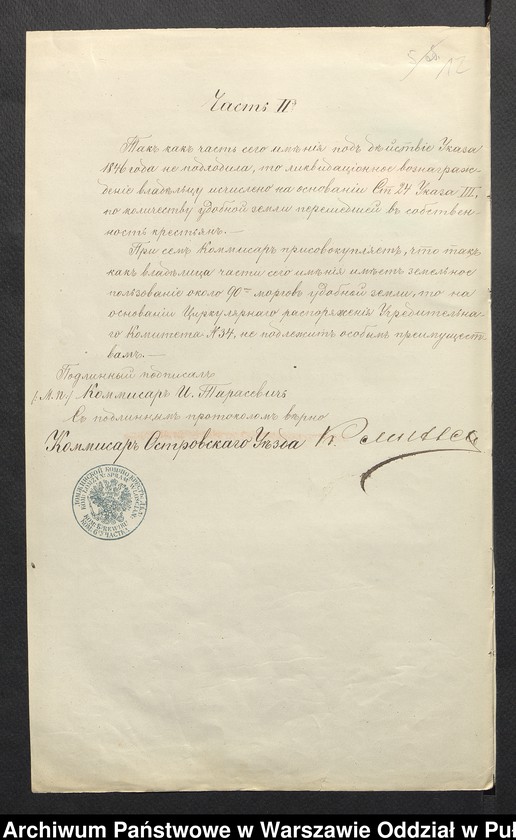 12
Часть II
Такъ какъ часть сего имѣнія подъ дѣйствіе Указа
1846 года не подходила, то ликвидаціонное вознаграж-
деніе владѣльцу исчислено на основаніи Ст. 24 Указа III,
по количеству удобной земли перешедшей въ собствен-
ность крестьянъ. —
При семъ Коммисаръ присовокупляетъ, что такъ
какъ владѣлица части сего имѣнія имѣетъ земельное
пользованіе около 90 морговъ удобной земли, то на
основаніи Циркулярнаго распоряженія Учредительна-
го Комитета N 34, не подлежитъ особымъ преимущест-
вамъ. —
Подлинный подписалъ
(М.П.) Коммисаръ И. Тарасевичъ
Съ подлиннымъ протоколомъ вѣрно
Коммисаръ Островскаго Уѣзда
Archiwum Państwowe w Warszawie Oddział w Puł